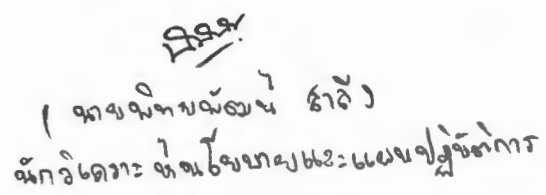 ( นายพิทยพัฒน์ สาลี )
นักวิเคราะห์นโยบายและแผนปฏิบัติการ